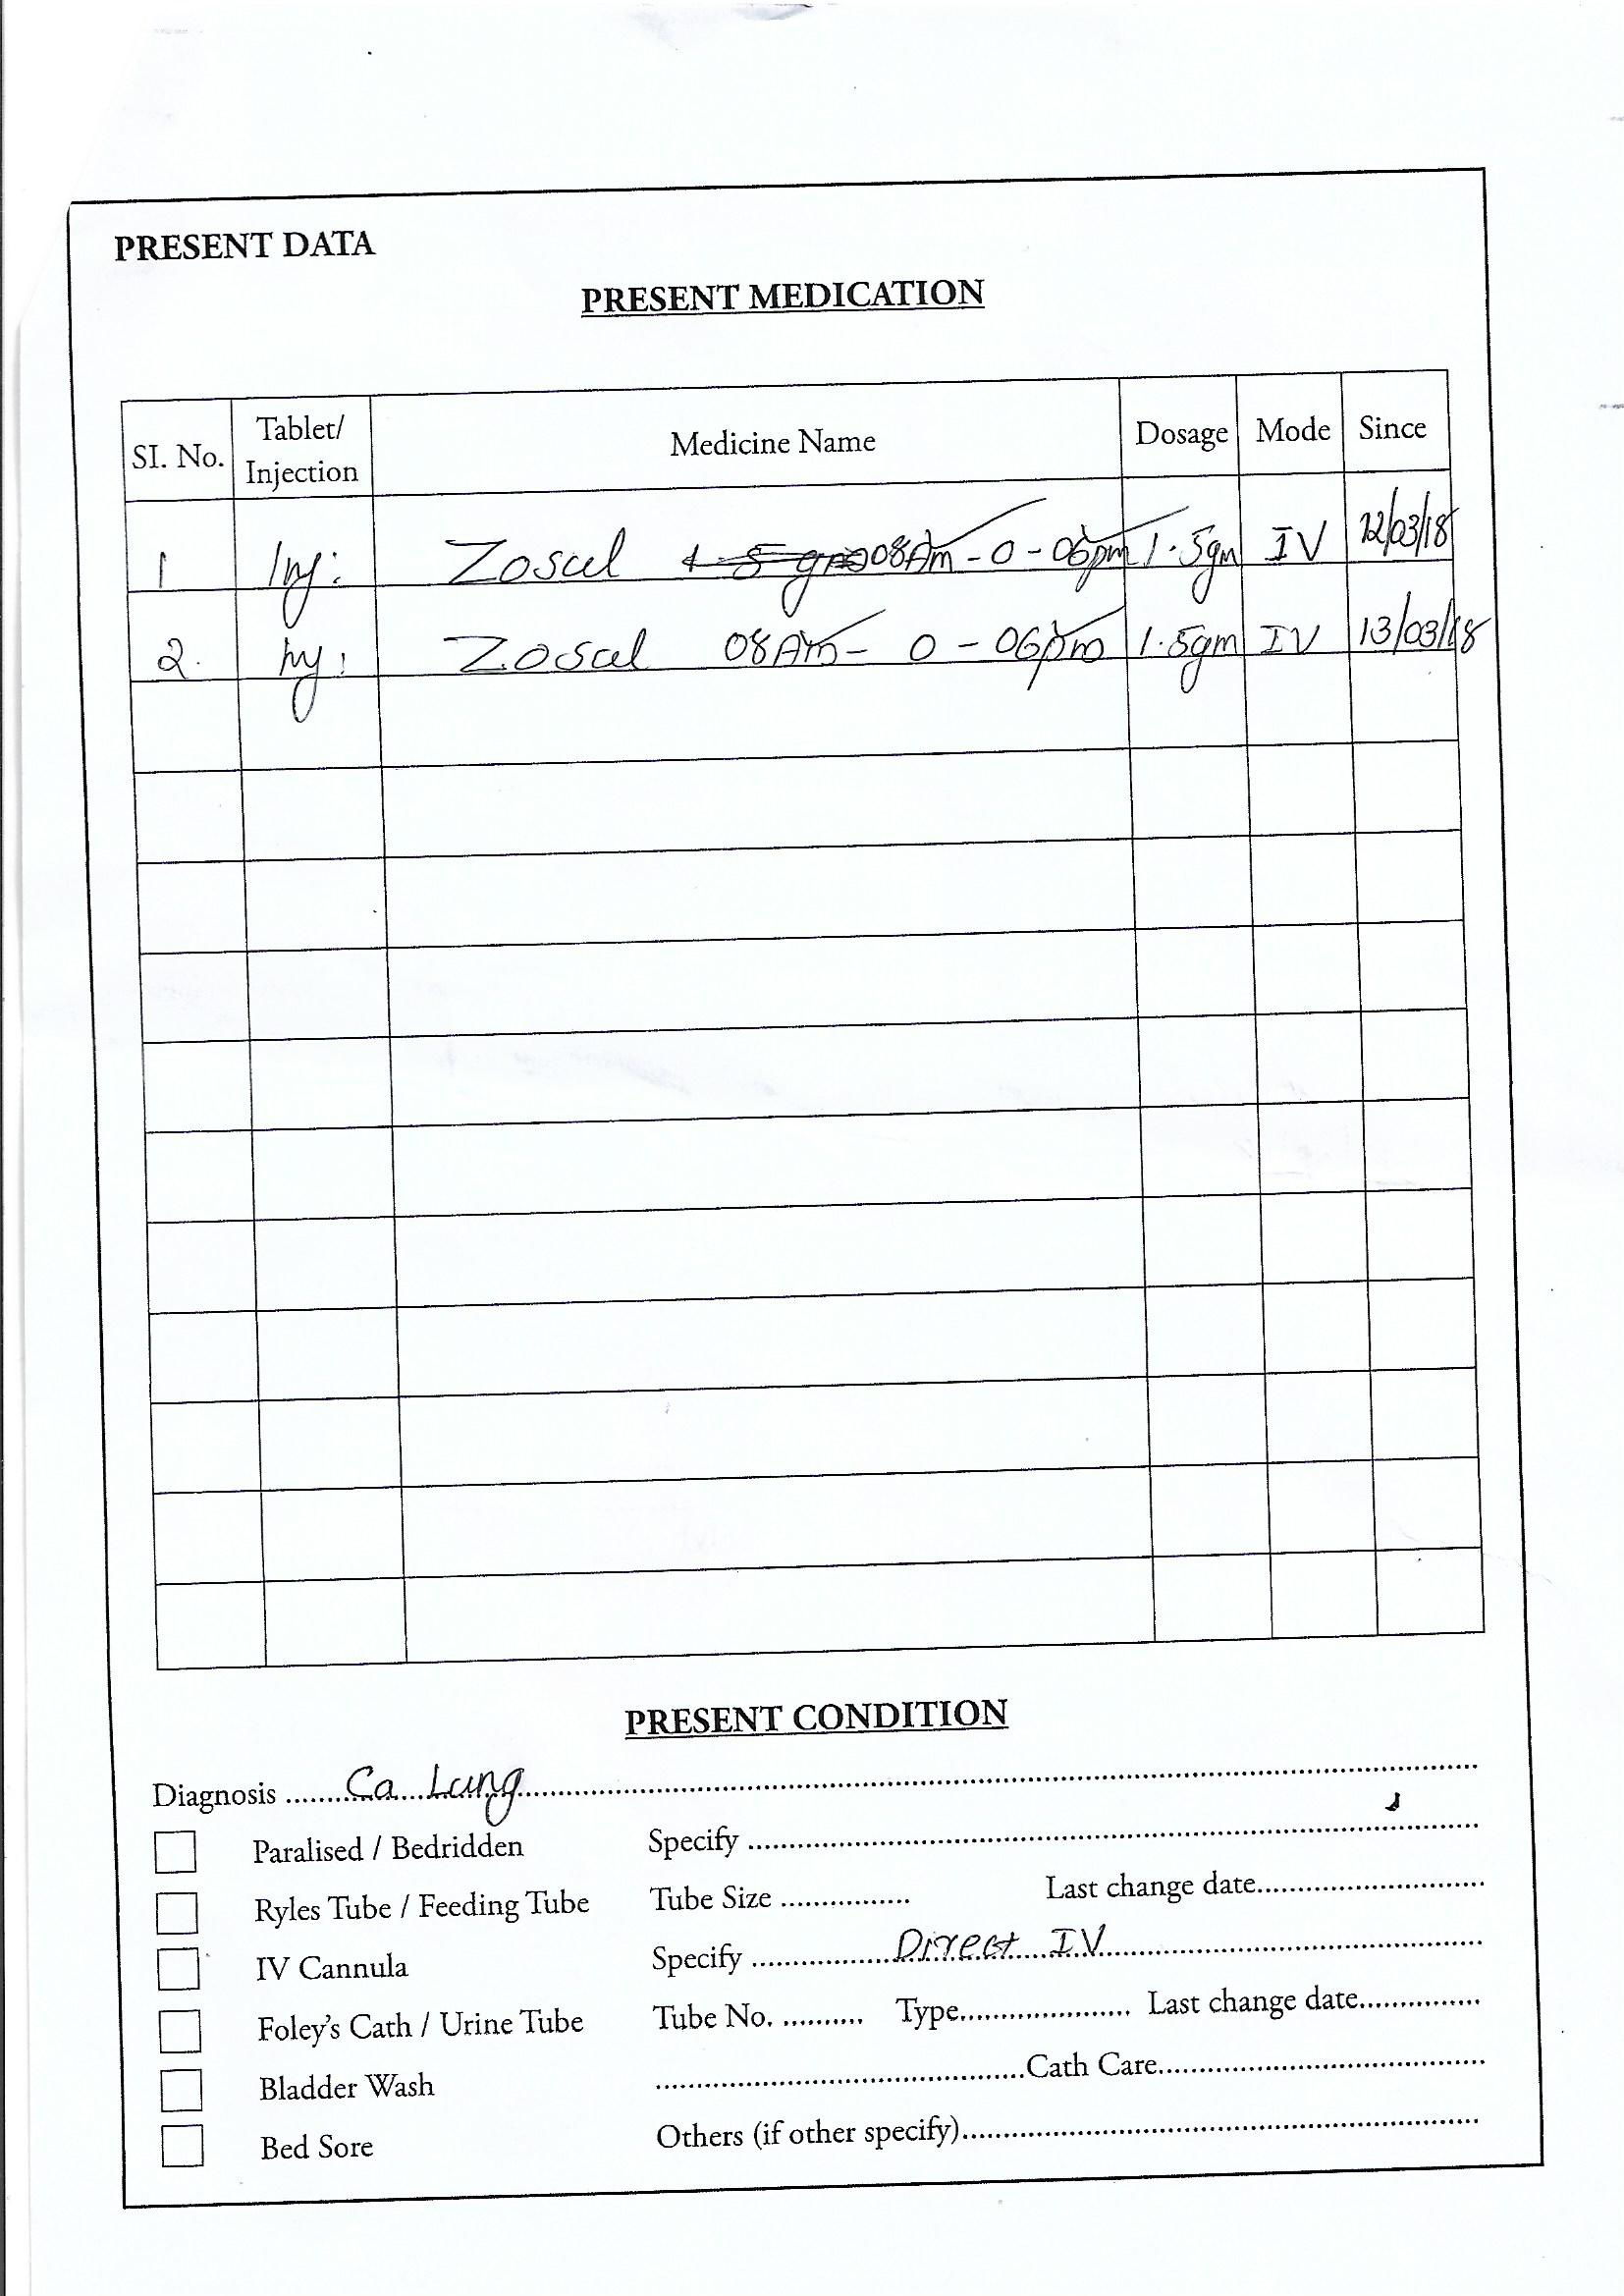 PRESENT DATA
PRESENT MEDICATION
SI. No. Tablet/ Injection Medicine Name Dosage Mode Since
1 Inj: Zosul 08Am - 0 - 06pm 1.5gm IV 12/03/18
2. Inj: Zosul 08Am - 0 - 06pm 1.5gm IV 13/03/18
PRESENT CONDITION
Diagnosis ...... Ca Lung ......
Paralised / Bedridden Specify ......
Ryles Tube / Feeding Tube Tube Size ...... Last change date......
IV Cannula Specify ...... Direct IV ......
Foley's Cath / Urine Tube Tube No. ...... Type...... Last change date......
Bladder Wash ......Cath Care......
Bed Sore Others (if other specify)......